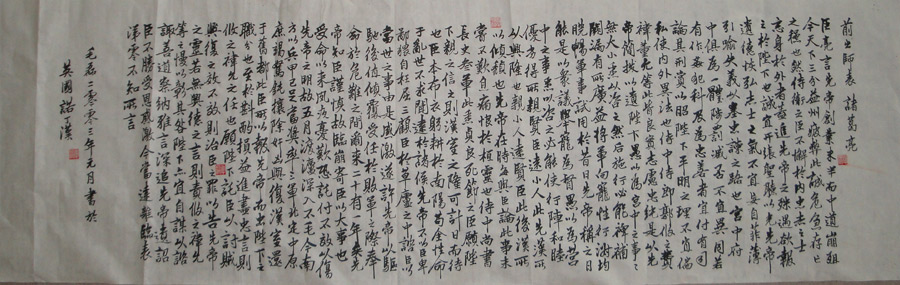 前出師表 諸葛亮
臣亮言先帝創業未半而中道崩殂
今天下三分益州疲弊此誠危急存亡
之秋也然侍衛之臣不懈於內忠志之士
忘身於外者蓋追先帝之殊遇欲報
之於陛下也誠宜開張聖聽以光先帝
遺德恢弘志士之氣不宜妄自菲薄
引喻失義以塞忠諫之路也宮中府
中俱為一體陟罰臧否不宜異同若
有作奸犯科及為忠善者宜付有司
論其刑賞以昭陛下平明之理不宜偏
私使內外異法也侍中侍郎郭攸之費
禕董允等此皆良實志慮忠純是以先
帝簡拔以遺陛下愚以為宮中之事事
無大小悉以咨之然後施行必能裨補
闕漏有所廣益將軍向寵性行淑均
曉暢軍事試用於昔日先帝稱之曰
能是以眾議舉寵為督愚以為營
中之事悉以咨之必能使行陣和睦
優劣得所親賢臣遠小人此先漢所
以興隆也親小人遠賢臣此後漢所
以傾頹也先帝在時每與臣論此事未
嘗不歎息痛恨於桓靈也侍中尚書
長史參軍此悉貞良死節之臣願陛
下親之信之則漢室之隆可計日而待
也臣本布衣躬耕於南陽苟全性命
于亂世不求聞達於諸侯先帝不以臣卑
鄙猥自枉屈三顧臣於草廬之中諮臣以
當世之事由是感激遂許先帝以驅
馳後值傾覆受任於敗軍之際奉
命於危難之間爾來二十有一年矣先
帝知臣謹慎故臨崩寄臣以大事也
受命以來夙夜憂歎恐託付不效以傷
先帝之明故五月渡瀘深入不毛今南
方以定兵甲已足當獎率三軍北定中原
庶竭駑鈍攘除奸凶興復漢室還
于舊都此臣所以報先帝而忠陛下之
職分也至於斟酌損益進盡忠言則
攸之禕允之任也願陛下託臣以討賊
興復之效不效則治臣之罪以告先帝
之靈若無興德之言則責攸之禕允
等之慢以彰其咎陛下亦宜自謀以諮
諏善道察納雅言深追先帝遺詔
臣不勝受恩感激今當遠離臨表
涕零不知所言
毛磊二零零三年元月書於
英國諾丁漢